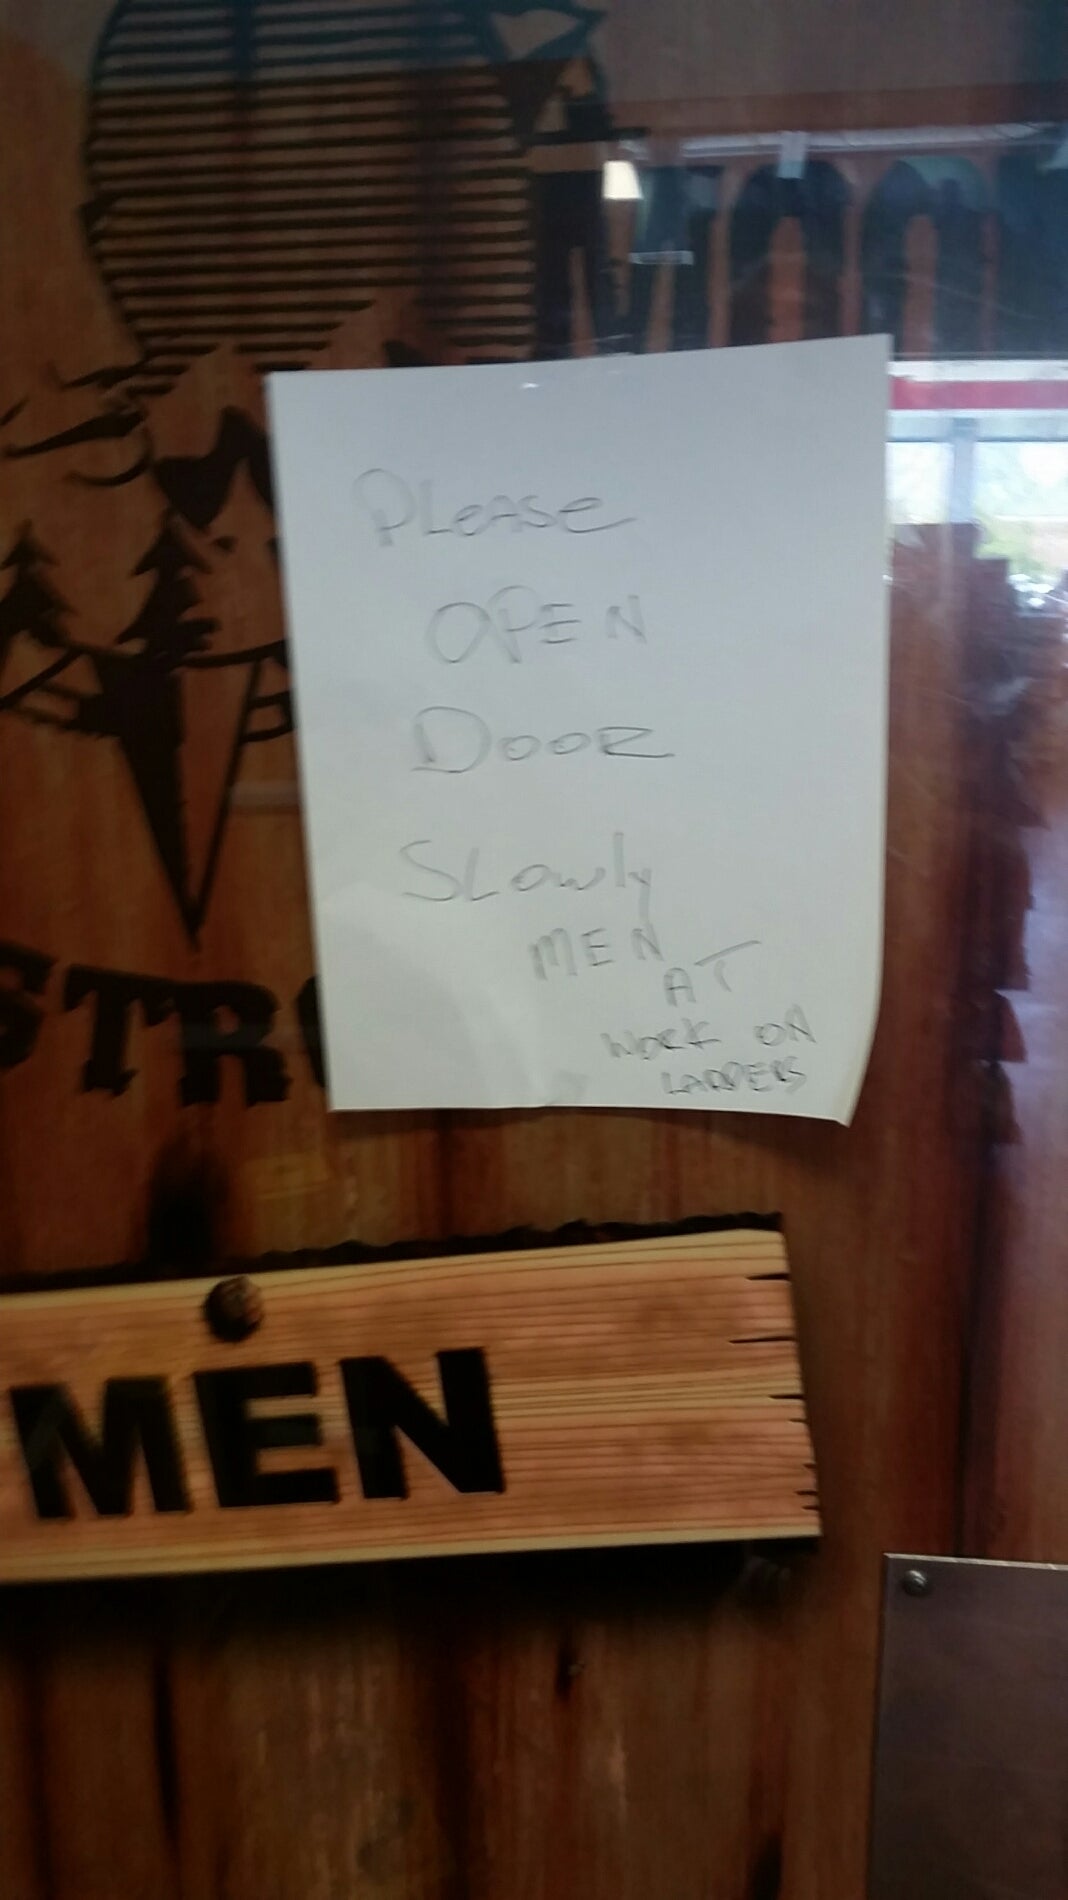 Please
OPEN
DOOR
SLowly
MEN
AT
WORK ON
LADDERS
STR
MEN